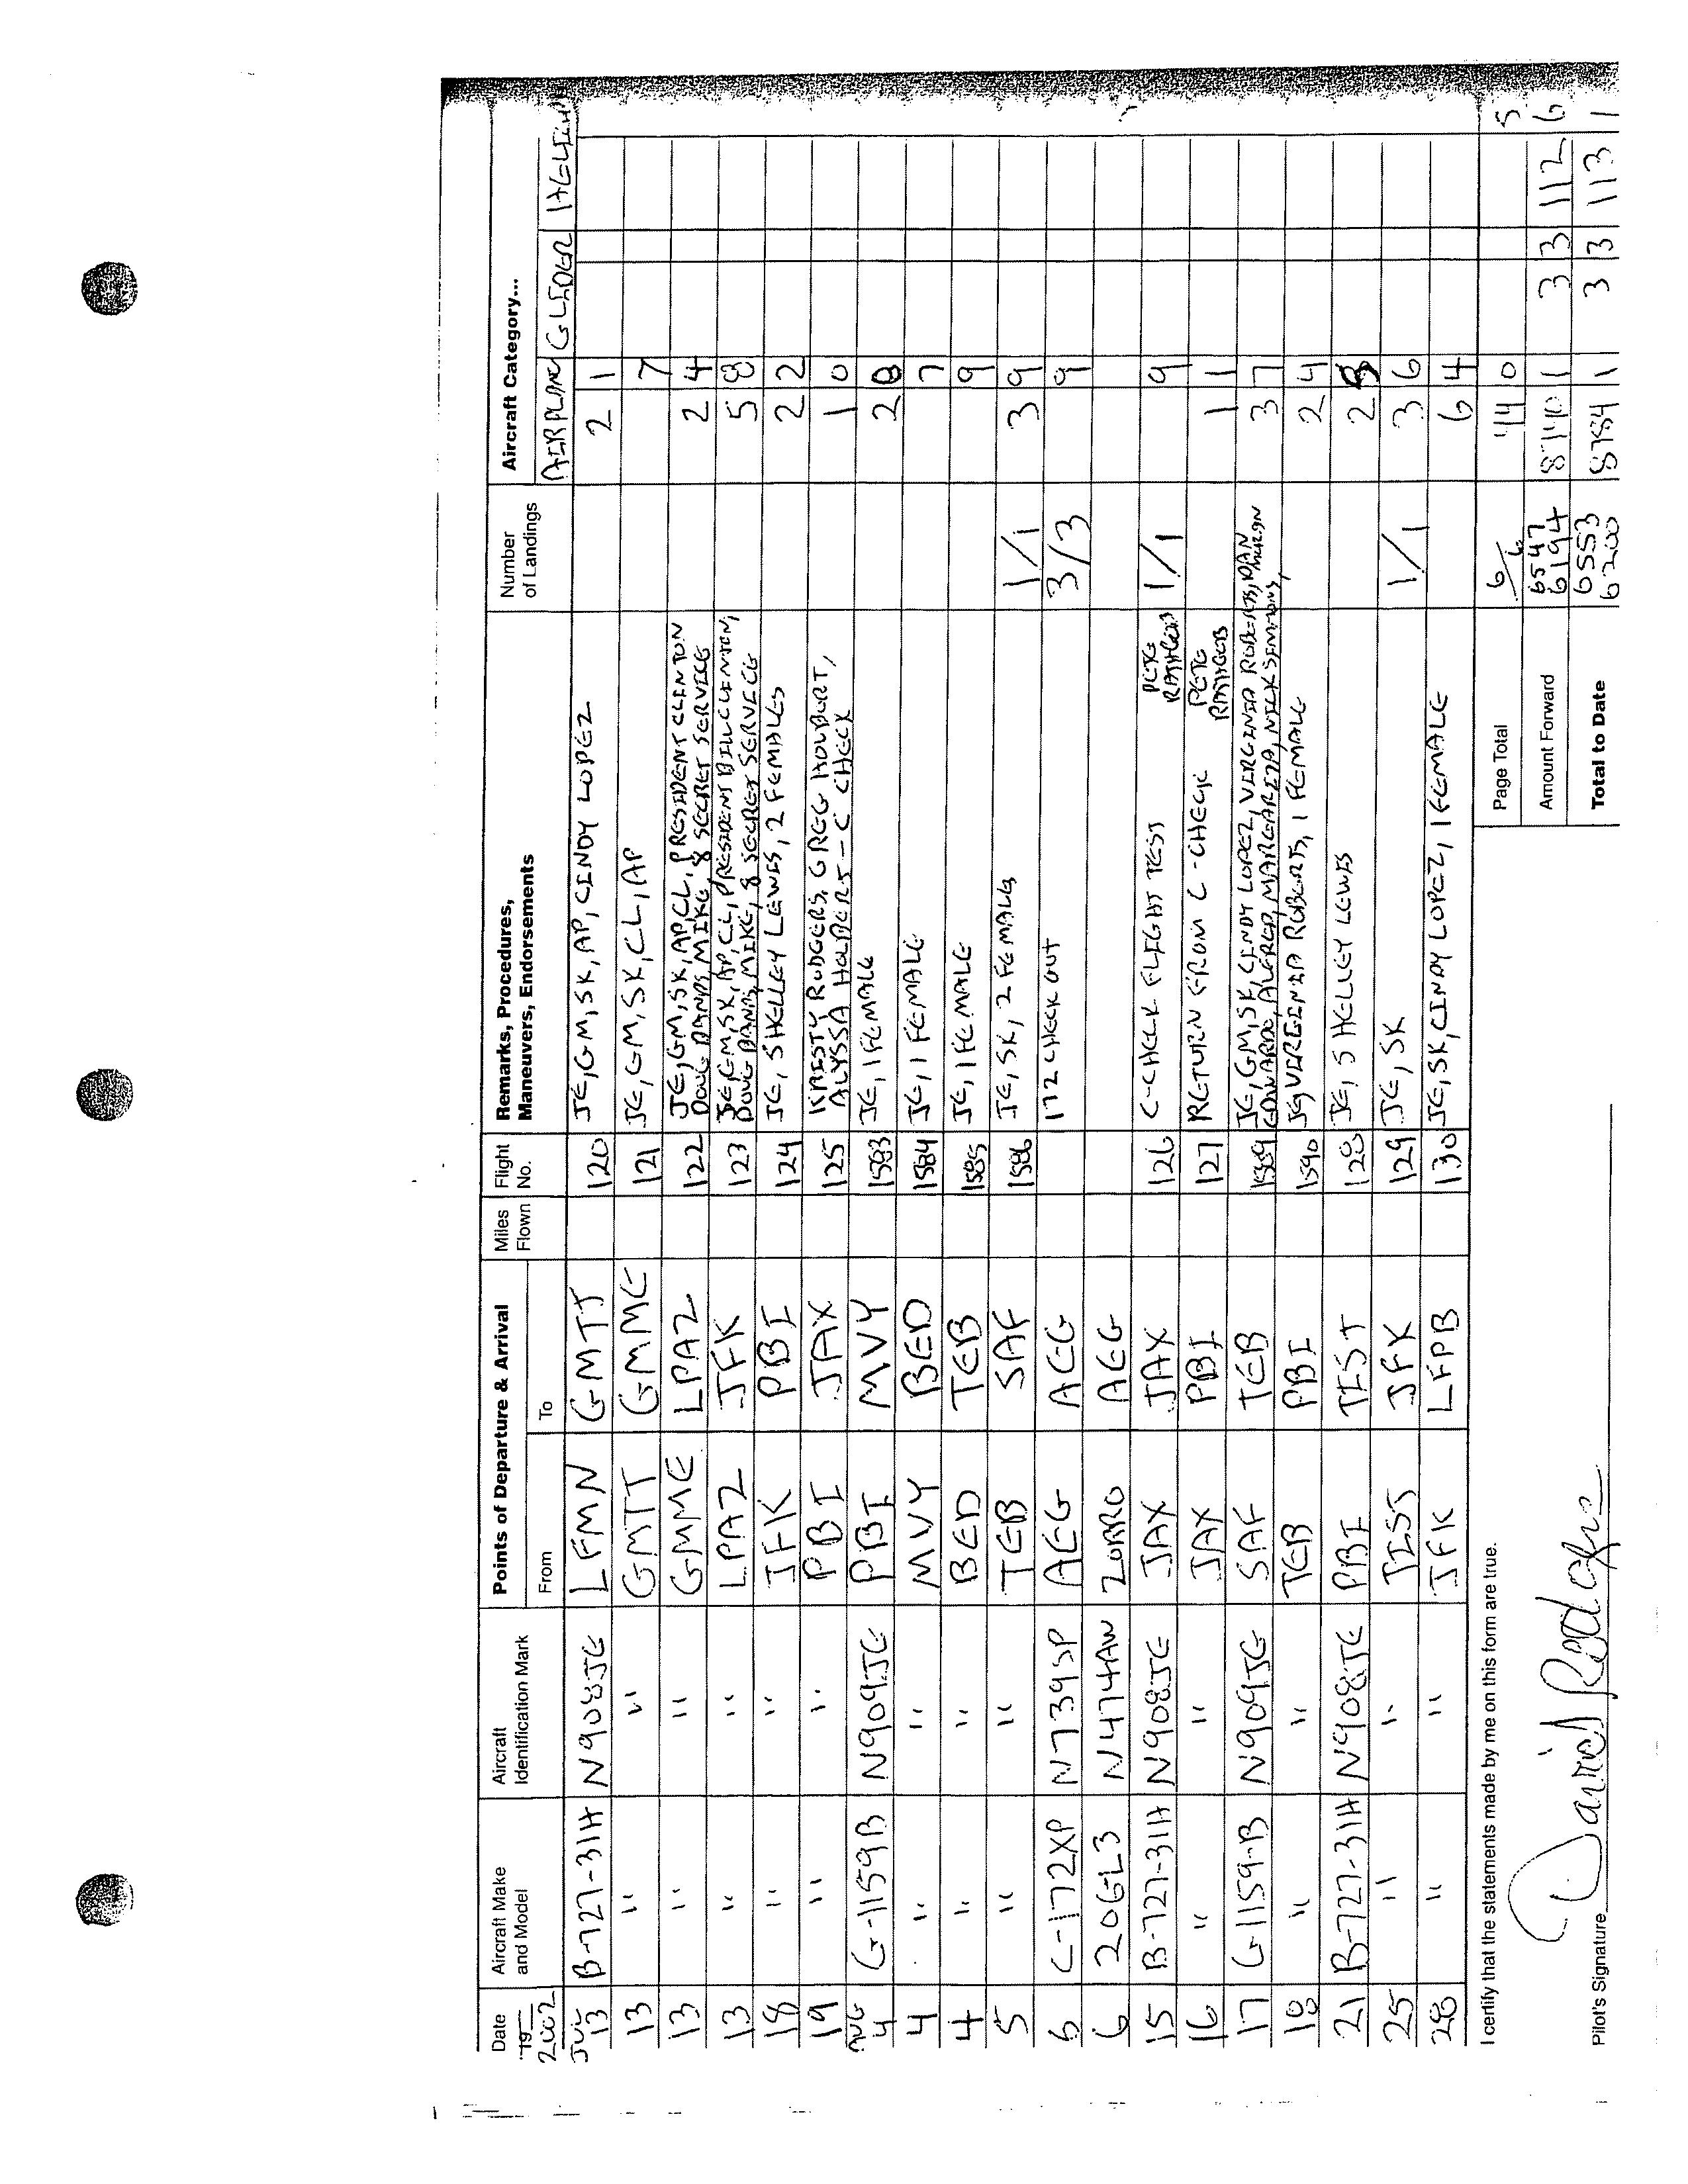 Date Aircraft Make and Model Aircraft Identification Mark Points of Departure & Arrival Miles Flown Flight No. Remarks, Procedures, Maneuvers, Endorsements Number of Landings Aircraft Category...
19 2002 From To AIRPLANE GLIDER
JUL 13 B-727-31H N908JE LFMN GMTT 120 JE, GM, SK, AP, CINDY LOPEZ 2 1
13 " " GMTT GMME 121 JE, GM, SK, CL, AP 7
13 " " GMME LPAZ 122 JE, GM, SK, AP, CL, PRESIDENT CLINTON
DOUG BANDS, MIKE, 8 SECRET SERVICE 2 4
13 " " LPAZ JFK 123 JE, GM, SK, AP, CL, PRESIDENT BILL CLINTON,
DOUG BANDS, MIKE, 8 SECRET SERVICE 5 8
18 " " JFK PBI 124 JE, SHELLEY LEWIS, 2 FEMALES 2 2
19 " " PBI JAX 125 KRISTY RODGERS, GREG HOLBERT,
ALYSSA HOLBERT - C CHECK 1 0
AUG 4 G-1159B N909JE PBI MVY 1583 JE, 1 FEMALE 2 8
4 " " MVY BED 1584 JE, 1 FEMALE 7
4 " " BED TEB 1585 JE, 1 FEMALE 9
5 " " TEB SAF 1586 JE, SK, 2 FEMALES 1/1 3 9
6 C-172XP N739SP AEG AEG 172 CHECK OUT 3/3 9
6 20GL3 N474AW ZORRO AEG
15 B-727-31H N908JE JAX JAX 126 C-CHECK FLIGHT TEST PETE RATHGEB 1/1 9
16 " " JAX PBI 127 RETURN FROM C-CHECK PETE RATHGEB 1 1
17 G-1159-B N909JE SAF TEB 1589 JE, GM, SK, CINDY LOPEZ, VIRGINIA ROBERTS, DAN
EDWARDO, ALFRED, MARGARITA, NICK SIMMONS, 3 7
18 " " TEB PBI 1590 JE, VIRGINIA ROBERTS, 1 FEMALE 2 4
21 B-727-31H N908JE PBI TIST 128 JE, SHELLEY LEWIS 2 8
25 " " TIST JFK 129 JE, SK 1/1 3 6
28 " " JFK LFPB 130 JE, SK, CINDY LOPEZ, 1 FEMALE 6 4
I certify that the statements made by me on this form are true.
Page Total 6/6 44 0 5
Amount Forward 6547 6194 8740 1 3 3 112 6
Total to Date 6553 6200 8784 1 3 3 113 1
Pilot's Signature David Rodgers